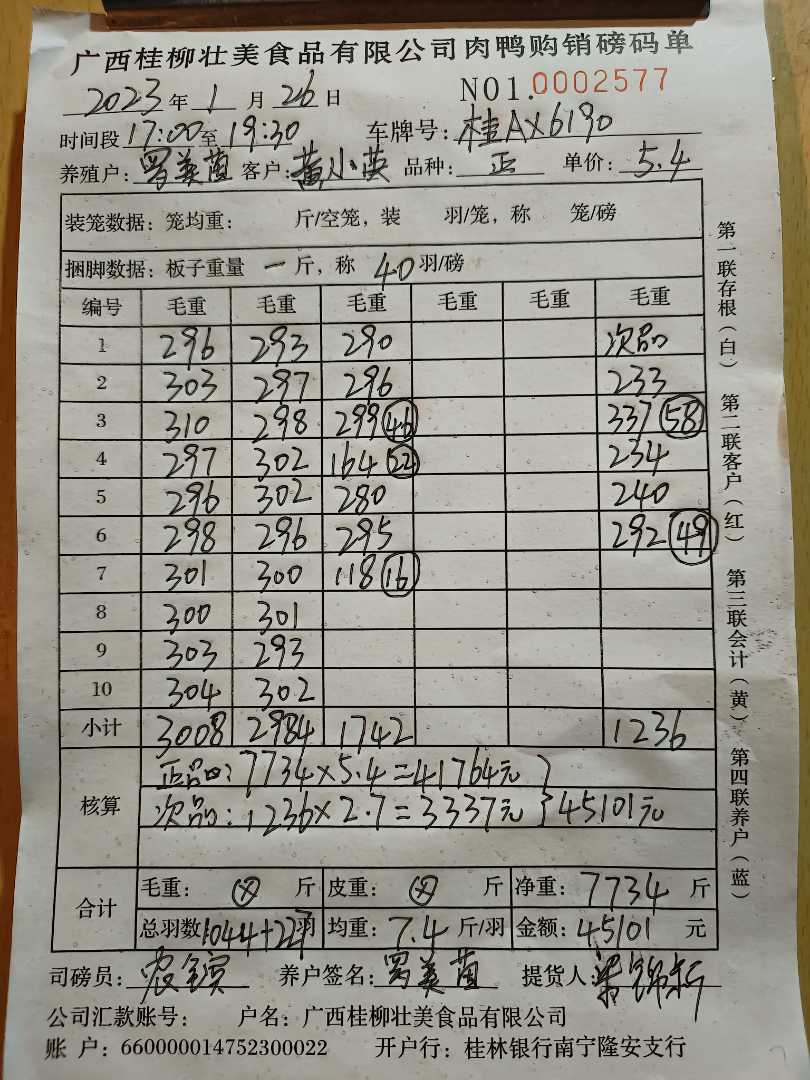 广西桂柳壮美食品有限公司肉鸭购销磅码单
2023年1月26日 NO1.0002577
时间段17:00至19:30 车牌号:桂AX6190
养殖户:罗美茵 客户:黄小英 品种:正 单价:5.4
装笼数据: 笼均重: 斤/空笼, 装 羽/笼, 称 笼/磅
捆脚数据: 板子重量 一 斤, 称 40 羽/磅
编号 毛重 毛重 毛重 毛重 毛重 毛重
1 296 293 290 次品
2 303 297 296 233
3 310 298 299 46 337 58
4 297 302 164 22 234
5 296 302 280 240
6 298 296 295 292 49
7 301 300 118 16
8 300 301
9 303 293
10 304 302
小计 3008 2984 1742 1236
核算
正品: 7734×5.4=41764元
次品: 1236×2.7=3337元 }45101元
合计
毛重: 斤 皮重: 斤 净重: 7734 斤
总羽数1044+227羽 均重: 7.4 斤/羽 金额: 45101 元
司磅员: 养户签名: 罗美茵 提货人:
公司汇款账号: 户名: 广西桂柳壮美食品有限公司
账 户: 660000014752300022 开户行: 桂林银行南宁隆安支行
第一联存根(白)
第二联客户(红)
第三联会计(黄)
第四联养户(蓝)